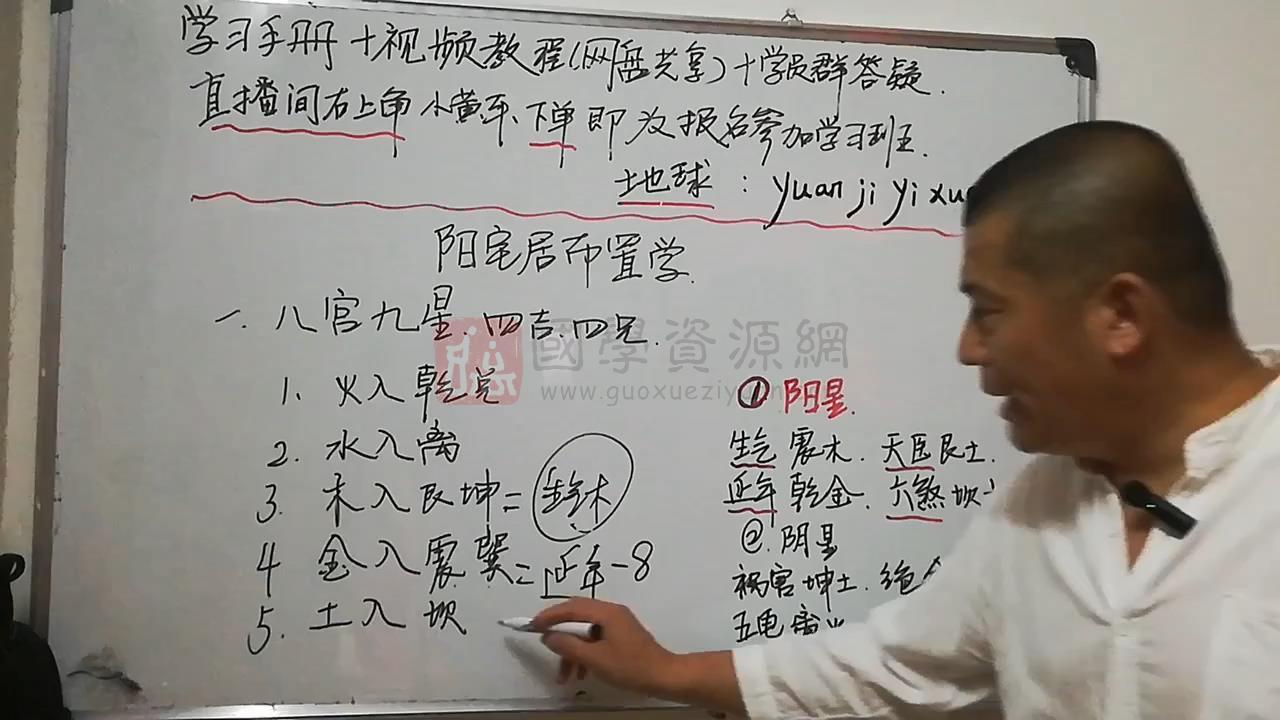 学习手册+视频教程(网盘共享)+学员群答疑.
直播间右上角小黄车、下单即为报名参加学习班.
土地球:yuanjiyixue
阳宅居布置学.
一.八宫九星.四吉.四兄.
國學資源網
www.guoxueziyuan
1.火入乾兑
2.水入离
3.木入艮坤=生气木
4 金入震巽=延年-8
5.土入坎
① 阳星.
生气震木.天医艮土.
延年乾金.六煞坎
②.阴星
祸害坤土.绝
五鬼离火